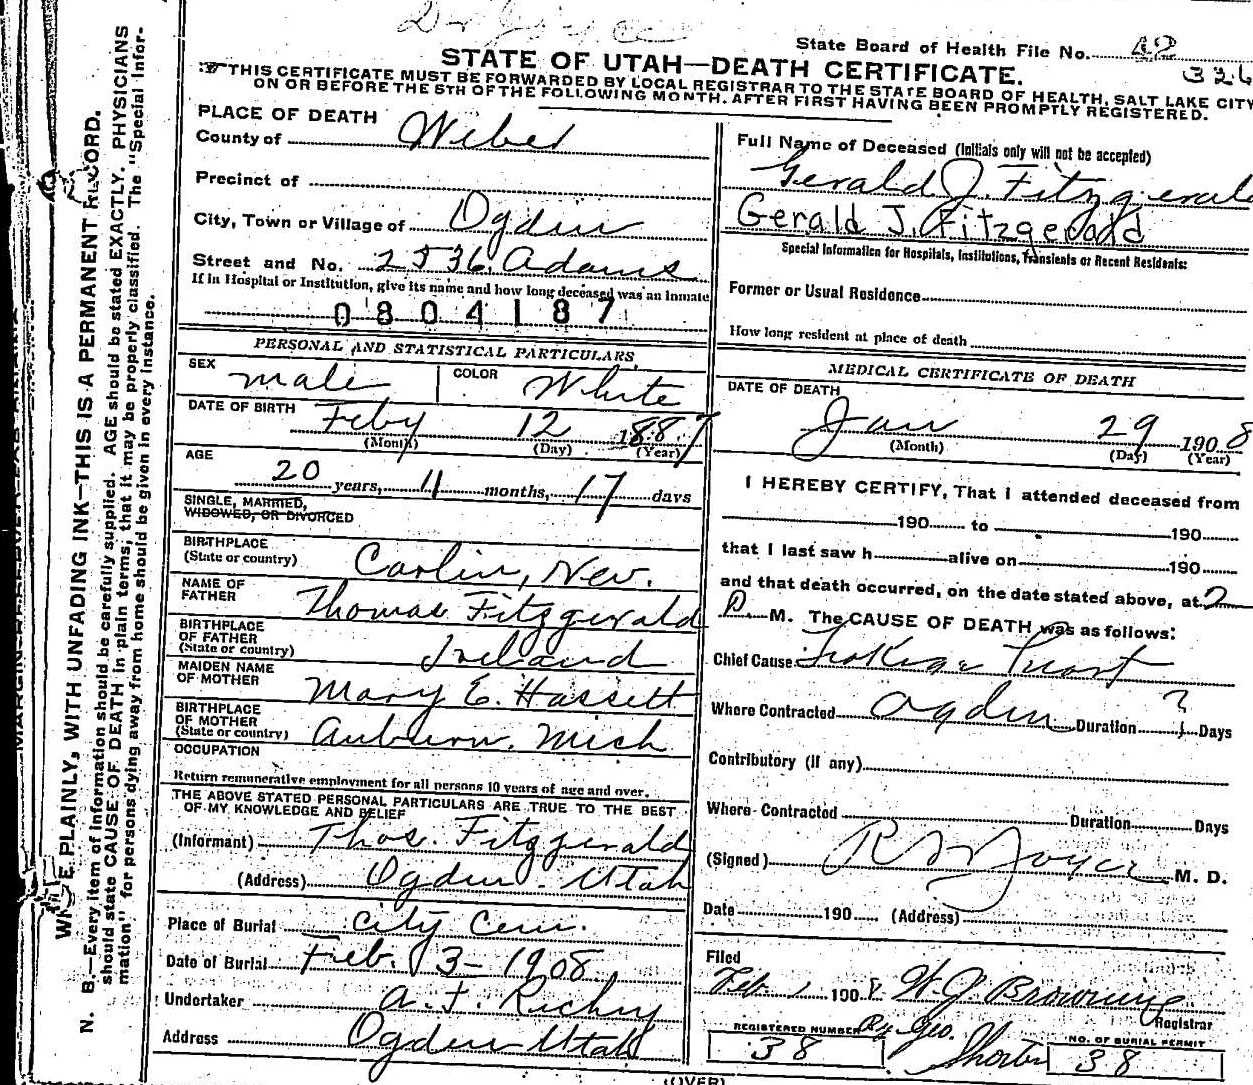 Dr Joyce
State Board of Health File No. 42
326
STATE OF UTAH—DEATH CERTIFICATE.
THIS CERTIFICATE MUST BE FORWARDED BY LOCAL REGISTRAR TO THE STATE BOARD OF HEALTH, SALT LAKE CITY
ON OR BEFORE THE 5TH OF THE FOLLOWING MONTH, AFTER FIRST HAVING BEEN PROMPTLY REGISTERED.
PLACE OF DEATH
County of Weber
Precinct of
City, Town or Village of Ogden
Street and No. 2536 Adams
If in Hospital or Institution, give its name and how long deceased was an Inmate
0804187
PERSONAL AND STATISTICAL PARTICULARS
SEX male COLOR White
DATE OF BIRTH Feby 12 1887
(Month) (Day) (Year)
AGE 20 years, 11 months, 17 days
SINGLE, MARRIED,
WIDOWED, OR DIVORCED
BIRTHPLACE
(State or country) Carlin, Nev.
NAME OF
FATHER Thomas Fitzgerald
BIRTHPLACE
OF FATHER
(State or country) Ireland
MAIDEN NAME
OF MOTHER Mary E. Hassett
BIRTHPLACE
OF MOTHER
(State or country) Auburn, Mich
OCCUPATION
Return remunerative employment for all persons 10 years of age and over.
THE ABOVE STATED PERSONAL PARTICULARS ARE TRUE TO THE BEST
OF MY KNOWLEDGE AND BELIEF
(Informant) Thos. Fitzgerald
(Address) Ogden - Utah
Place of Burial City Cem.
Date of Burial Feb. 3 - 1908
Undertaker A. J. Richey
Address Ogden Utah
Full Name of Deceased (Initials only will not be accepted)
Gerald J. Fitzgerald
Gerald J. Fitzgerald
Special Information for Hospitals, Institutions, Transients or Recent Residents:
Former or Usual Residence
How long resident at place of death
MEDICAL CERTIFICATE OF DEATH
DATE OF DEATH
Jan 29 1908
(Month) (Day) (Year)
I HEREBY CERTIFY, That I attended deceased from
190 to 190
that I last saw h alive on 190
and that death occurred, on the date stated above, at 2
P. M. The CAUSE OF DEATH was as follows:
Chief Cause
Where Contracted Ogden Duration ? Days
Contributory (if any)
Where Contracted Duration Days
(Signed) Joyce M. D.
Date 190 (Address)
Filed
Feb. 1 1908 W. J. Browning
Registrar
By Geo. Shorten
REGISTERED NUMBER
38
NO. OF BURIAL PERMIT
38
(OVER)
PLAINLY, WITH UNFADING INK—THIS IS A PERMANENT RECORD.
N. B.—Every item of information should be carefully supplied. AGE should be stated EXACTLY. PHYSICIANS
should state CAUSE OF DEATH in plain terms, that it may be properly classified. The "Special Infor-
mation" for persons dying away from home should be given in every instance.